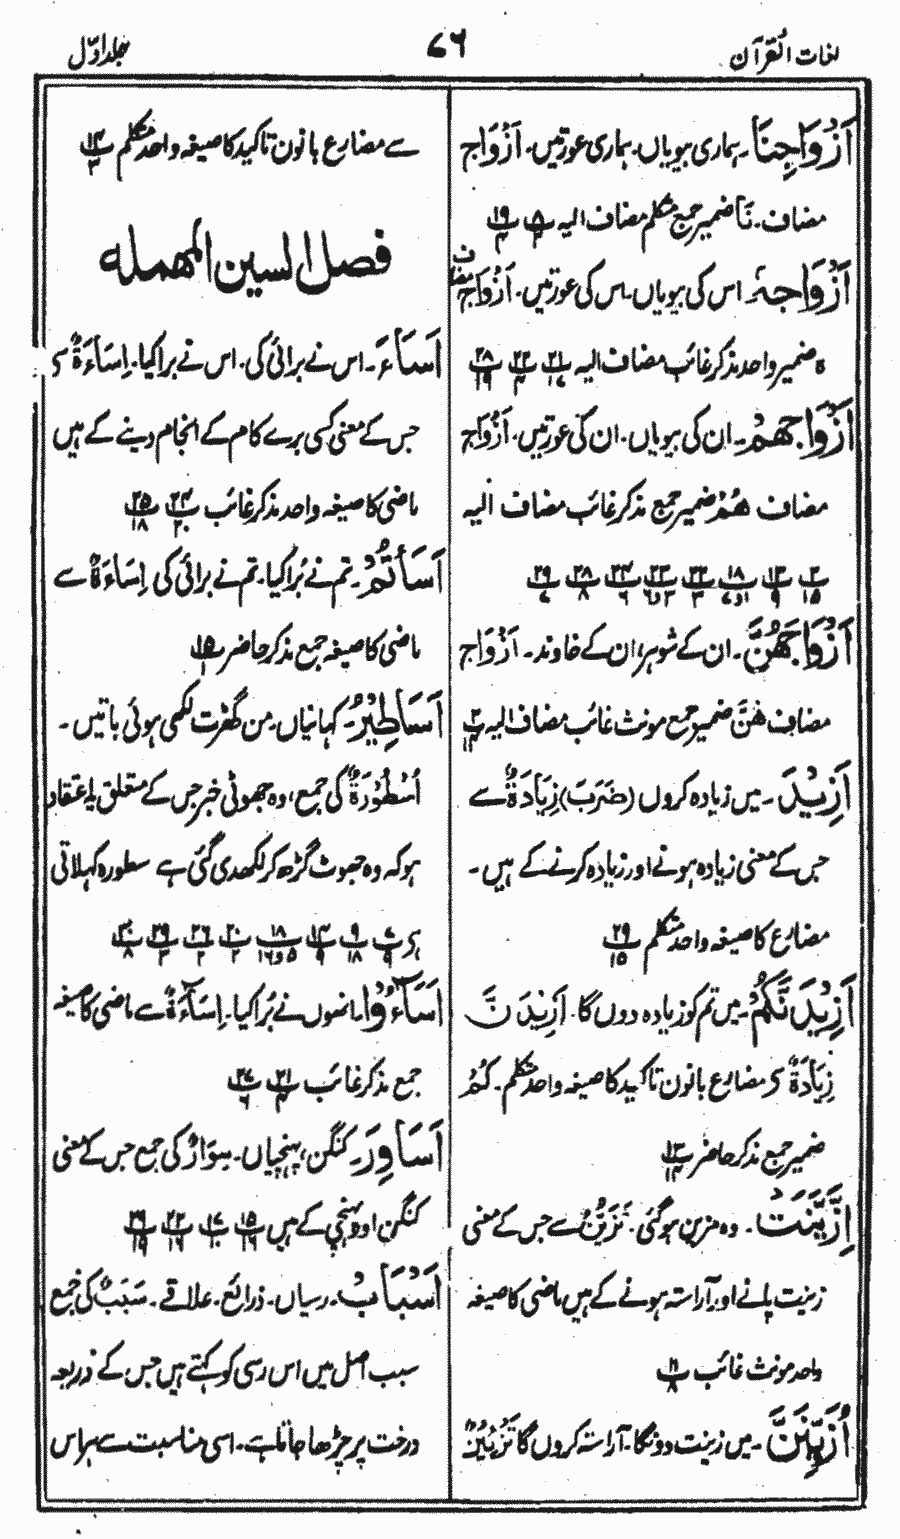 لغات القرآن
۷۶
جلد اوّل
اَزْوَاجِنَا۔ ہماری بیویاں۔ ہماری عورتیں۔ اَزْوَاج
مضاف۔ نَا ضمیر جمع متکلم مضاف الیہ پ۸ ۱۹
اَزْوَاجِہٖ اس کی بیویاں۔ اس کی عورتیں۔ اَزْوَاج مضاف
ہ ضمیر واحد مذکر غائب مضاف الیہ ۲۱ ۲۲ ۲۸
اَزْوَاجِھِمْ۔ ان کی بیویاں۔ ان کی عورتیں۔ اَزْوَاج
مضاف ھُمْ ضمیر جمع مذکر غائب مضاف الیہ
۲/۱۵ ۱۳/۹ ۱۸/۱و۷ ۲۲/۳ ۲۳/۳و۶ ۲۴/۶ ۲۸/۸ ۲۹/۷
اَزْوَاجَھُنَّ۔ ان کے شوہر، ان کے خاوند۔ اَزْوَاج
مضاف ھُنَّ ضمیر جمع مونث غائب مضاف الیہ پ۲/۱۴
اَزِیْدَ۔ میں زیادہ کروں (ضَرَبَ) زِیَادَۃٌ سے
جس کے معنی زیادہ ہونے اور زیادہ کرنے کے ہیں۔
مضارع کا صیغہ واحد متکلم ۲۹/۱۵
اَزِیْدَنَّکُمْ۔ میں تم کو زیادہ دوں گا۔ اَزِیْدَنَّ
زِیَادَۃٌ سے مضارع بانون تاکید کا صیغہ واحد متکلم۔ کُمْ
ضمیر جمع مذکر حاضر ۱۳/۱۴
اِزَّیَّنَتْ۔ وہ مزین ہوگئی۔ تَزَیُّنٌ سے جس کے معنی
زینت پانے اور آراستہ ہونے کے ہیں ماضی کا صیغہ
واحد مونث غائب ۱۱/۸
اُزَیِّنَنَّ۔ میں زینت دونگا۔ آراستہ کروں گا تَزْیِیْنٌ
سے مضارع بانون تاکید کا صیغہ واحد متکلم ۱۴/۳
فصل السین المہملہ
اَسَاءَ۔ اس نے برائی کی۔ اس نے برا کیا۔ اِسَاءَۃٌ سے
جس کے معنی کسی برے کام کے انجام دینے کے ہیں
ماضی کا صیغہ واحد مذکر غائب ۲۴/۲۰ ۲۵/۱۸
اَسَأْتُمْ۔ تم نے بُرا کیا۔ تم نے برائی کی اِسَاءَۃٌ سے
ماضی کا صیغہ جمع مذکر حاضر ۱۵/۱
اَسَاطِیْرُ۔ کہانیاں۔ من گھڑت لکھی ہوئی باتیں۔
اُسْطُوْرَۃٌ کی جمع، وہ جھوٹی خبر جس کے متعلق یہ اعتقاد
ہو کہ وہ جھوٹ گڑھ کر لکھدی گئی ہے سطورہ کہلاتی
ہے ۷/۹ ۹/۱۸ ۱۴/۹ ۱۸/۵و۱۶ ۲۰/۲ ۲۶/۲ ۲۹/۳ ۳۰/۸
اَسَآءُوْا۔ انہوں نے بُرا کیا۔ اِسَآءَۃٌ سے ماضی کا صیغہ
جمع مذکر غائب ۲۱/۴ ۲۷/۶
اَسَاوِرَ۔ کنگن، پہنچیاں۔ سِوَارٌ کی جمع جس کے معنی
کنگن اور پہنچی کے ہیں ۱۵/۱۶ ۱۷/۱۰ ۲۲/۱۶ ۲۹/۱۵
اَسْبَاب۔ رسیاں۔ ذرائع۔ علاقے۔ سَبَبٌ کی جمع
سبب اصل میں اس رسی کو کہتے ہیں جس کے ذریعہ
درخت پر چڑھا جاتا ہے۔ اسی مناسبت سے ہر اس